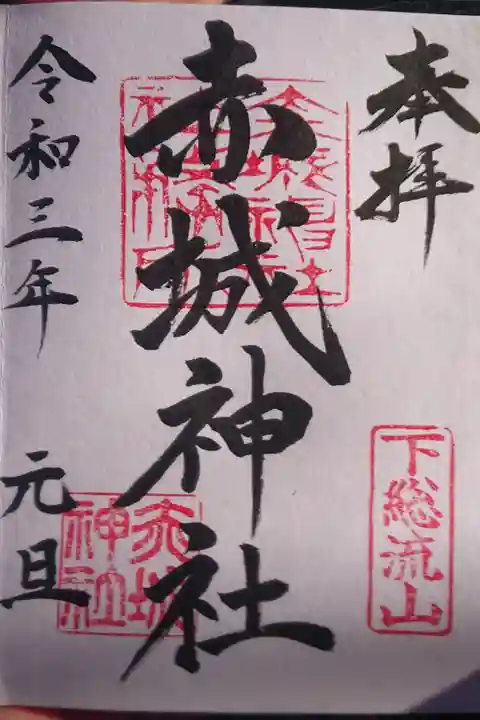 奉拝
下総流山
赤城神社
赤城
神社
令和三年 元旦